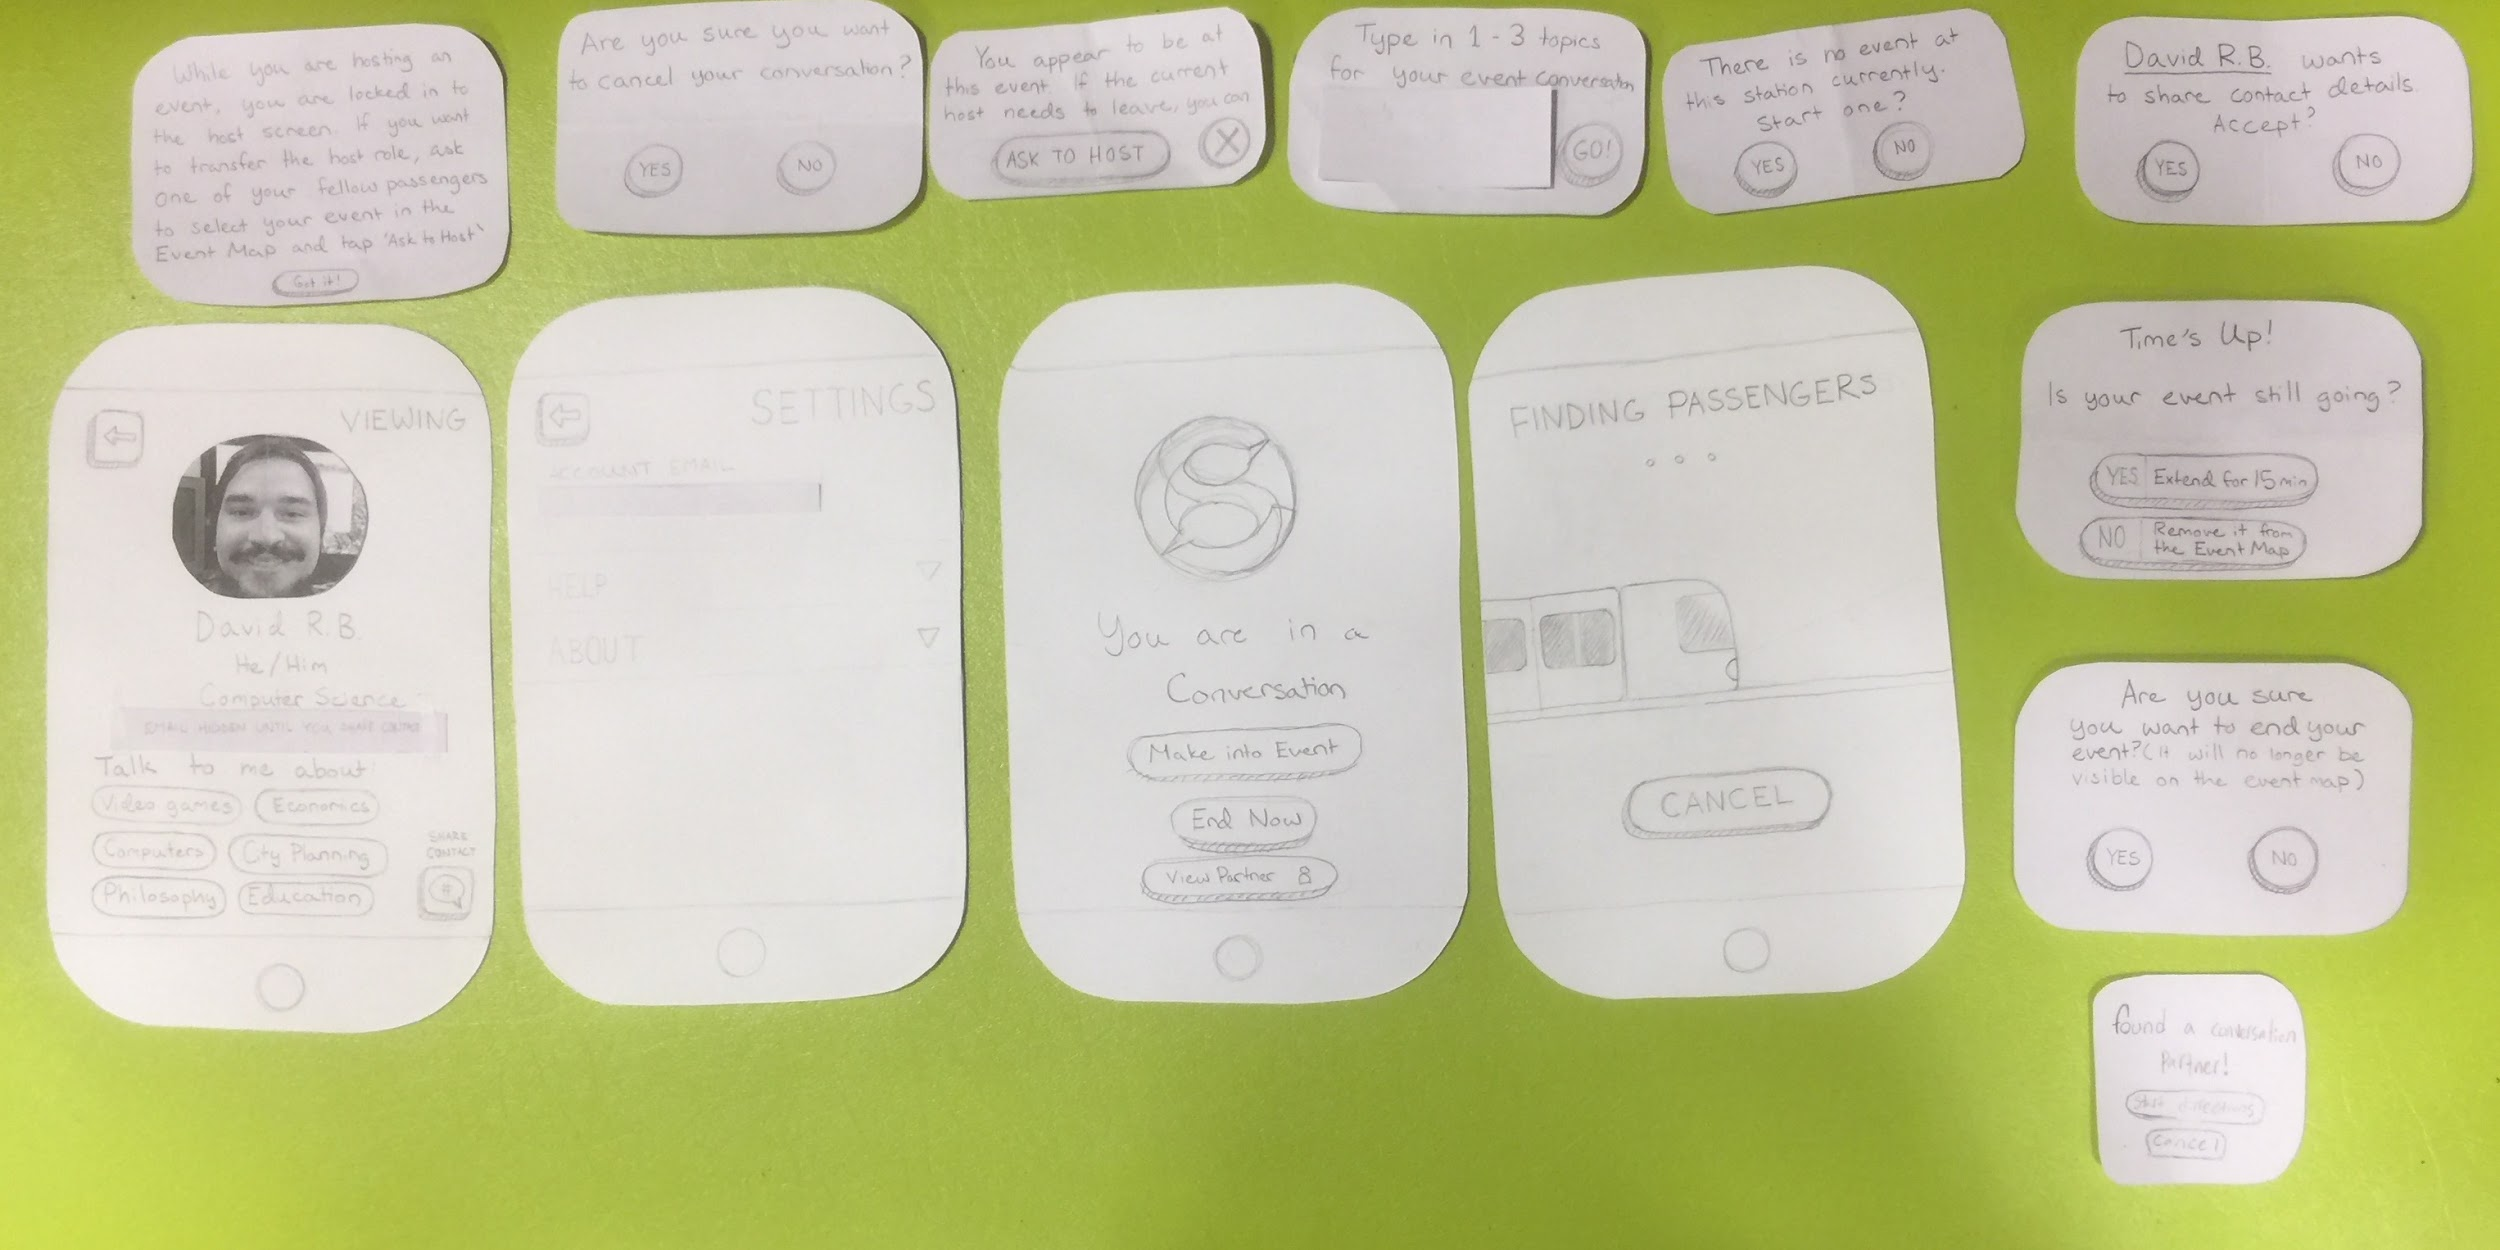 While you are hosting an
event, you are locked in to
the host screen. If you want
to transfer the host role, ask
one of your fellow passengers
to select your event in the
Event Map and tap 'Ask to Host'
Got it!
Are you sure you want
to cancel your conversation?
YES
NO
You appear to be at
this event. If the current
host needs to leave, you can
ASK TO HOST
X
Type in 1 - 3 topics
for your event conversation
GO!
There is no event at
this station currently.
Start one?
YES
NO
David R.B. wants
to share contact details.
Accept?
YES
NO
VIEWING
David R.B.
He/Him
Computer Science
EMAIL HIDDEN UNTIL YOU SHARE CONTACT
Talk to me about:
Video games
Economics
Computers
City Planning
Philosophy
Education
SHARE
CONTACT
#
SETTINGS
ACCOUNT EMAIL
HELP
ABOUT
You are in a
Conversation
Make into Event
End Now
View Partner
FINDING PASSENGERS
CANCEL
Time's Up!
Is your event still going?
YES Extend for 15 min
NO Remove it from
the Event Map
Are you sure
you want to end your
event? (It will no longer be
visible on the event map)
YES
NO
found a conversation
partner!
Start directions
Cancel